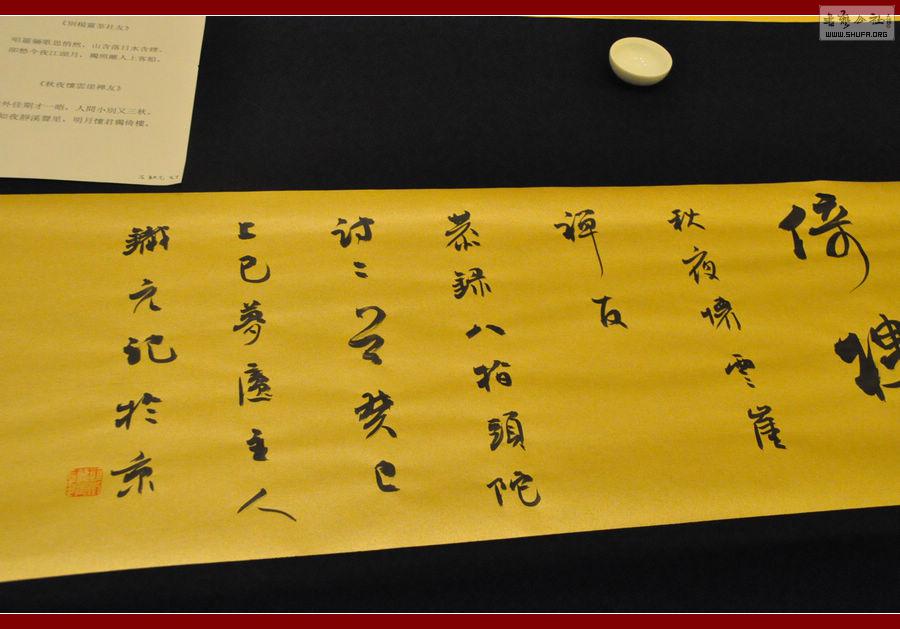 《別楊靈荃社友》
唱罷驪歌思悄然，山含落日水含煙。
卻愁今夜江頭月，獨照離人上客船。
《秋夜懷雲崖禪友》
外佳期才一晤，人間小別又三秋。
知夜靜溪聲，明月懷君獨倚樓。
倚樓
秋夜懷雲崖
禪友
恭錄八指頭陀
詩二首癸巳
上巳夢廬主人
元記於京
書藝公社
WWW.SHUFA.ORG